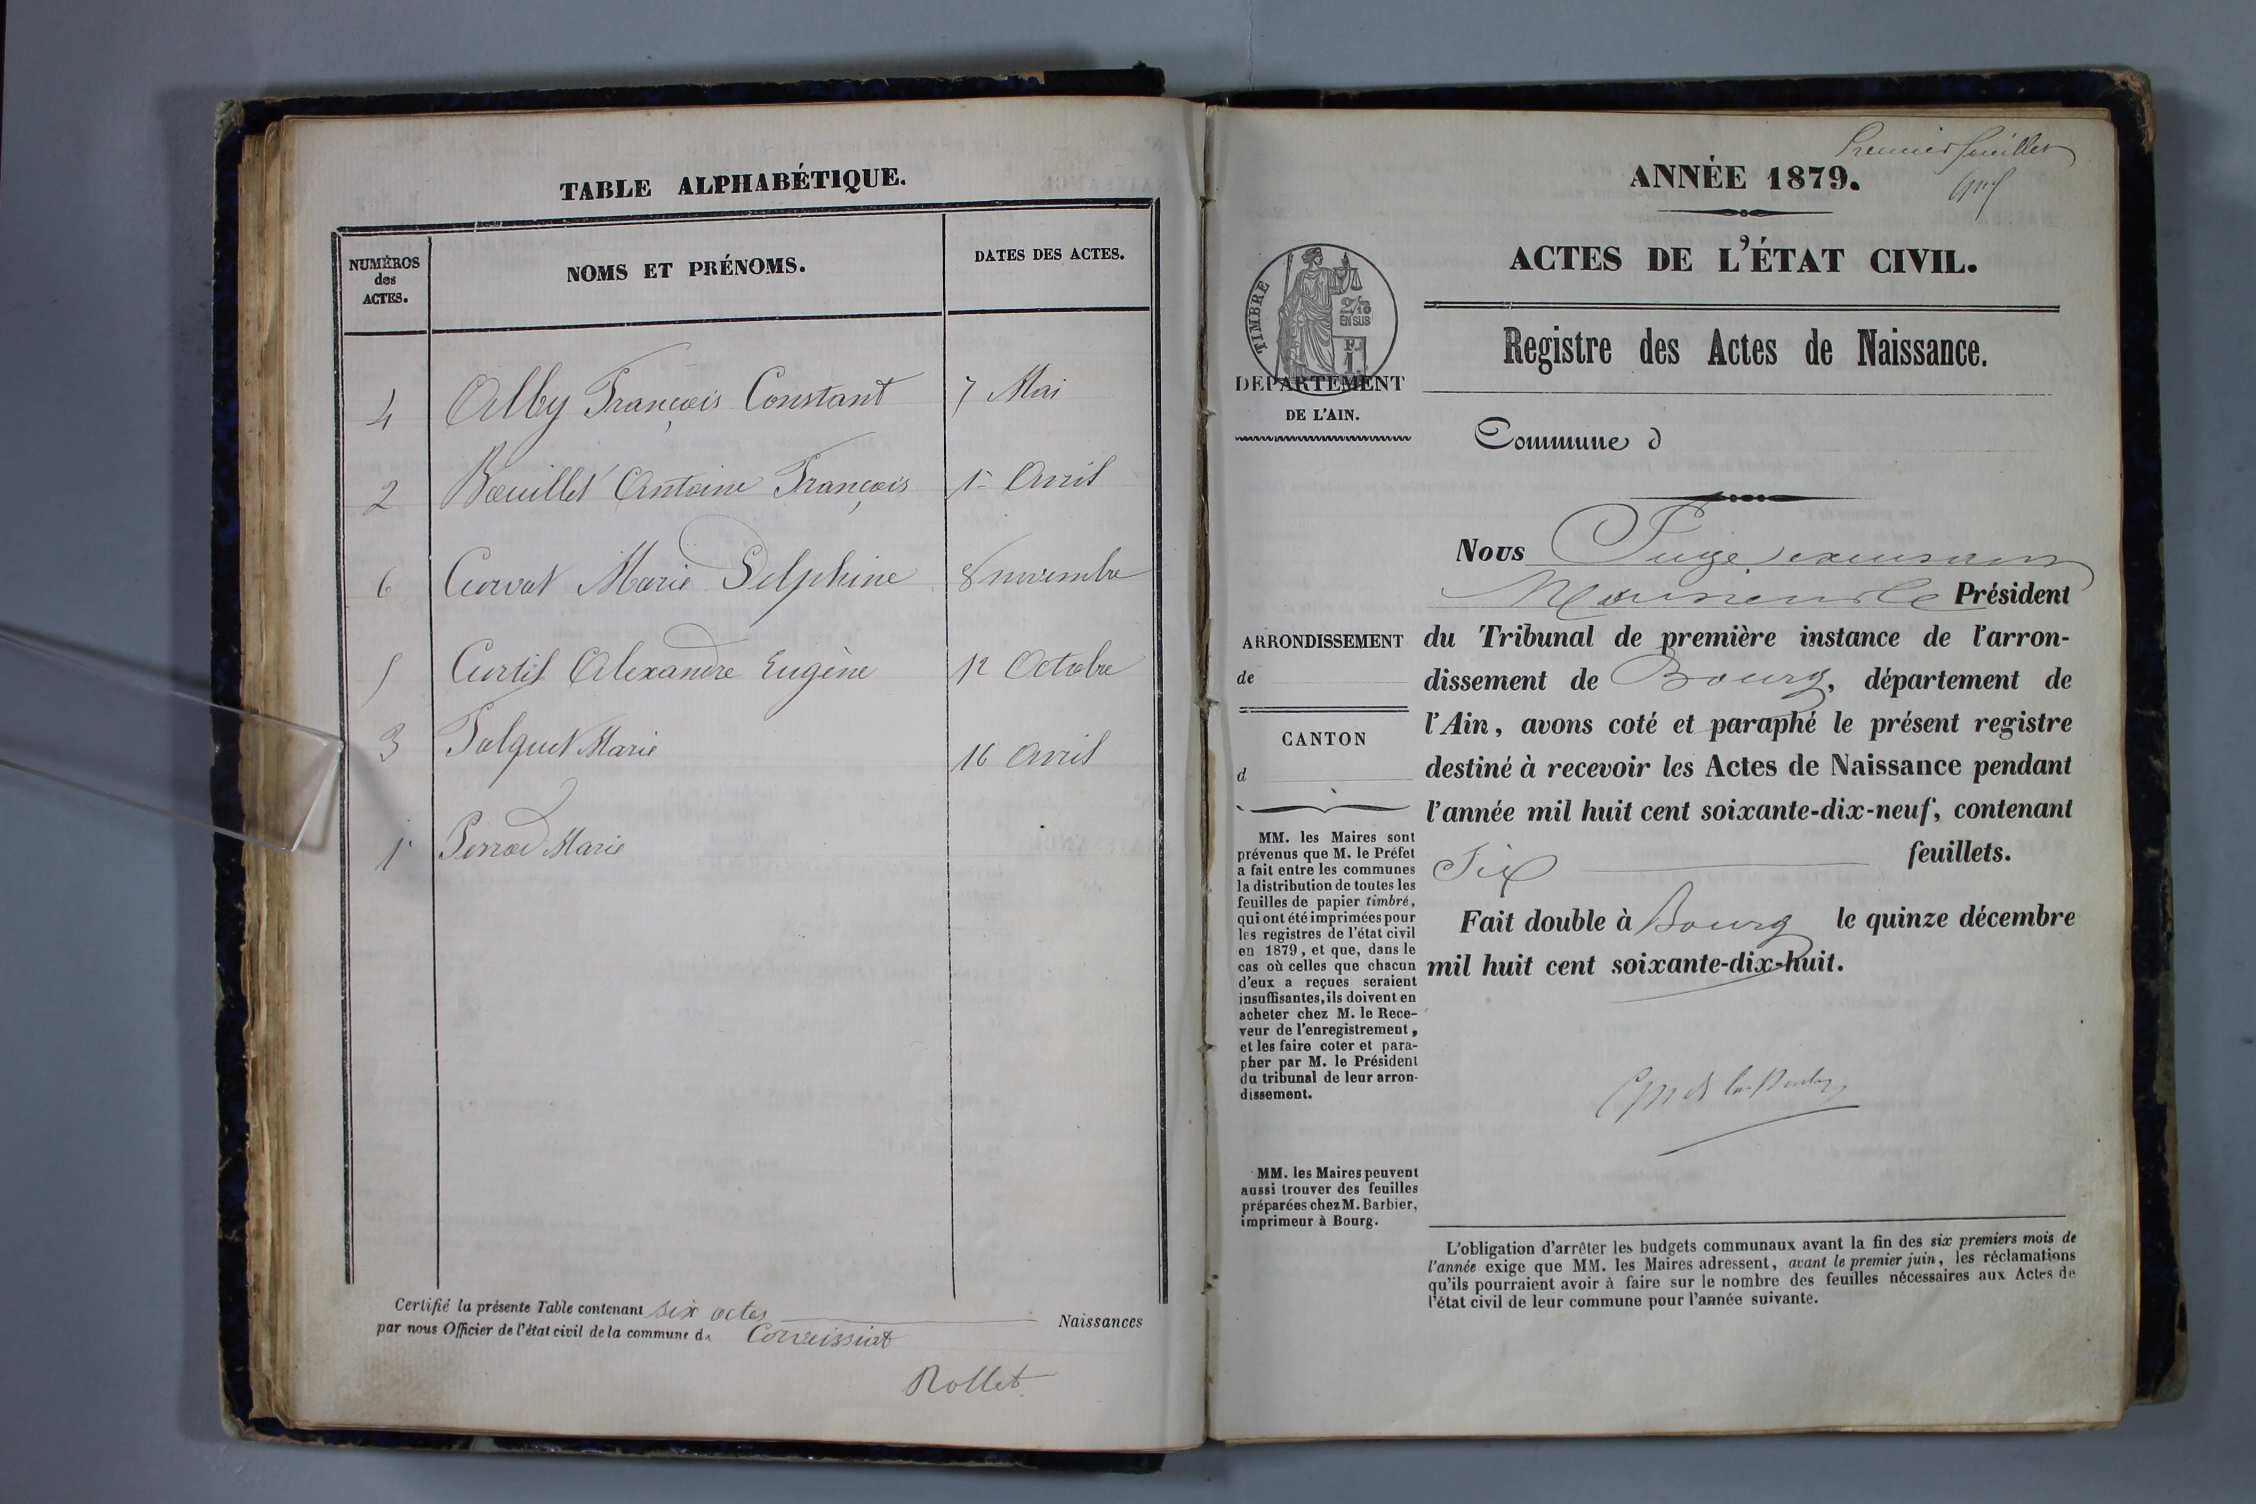 TABLE ALPHABÉTIQUE.
NUMÉROS des ACTES.
NOMS ET PRÉNOMS.
DATES DES ACTES.
4 Alby François Constant 7 Mai
2 Bouillet Antoine François 1er Avril
6 Curvat Marie Delphine 8 novembre
5 Curtil Alexandre Eugène 12 Octobre
3 Folquet Marie 16 Avril
1 Perrod Marie
Certifié la présente Table contenant six actes Naissances
par nous Officier de l'état civil de la commune de Corveissiat
Rollet
Premier feuillet
ANNÉE 1879.
ACTES DE L'ÉTAT CIVIL.
Registre des Actes de Naissance.
TIMBRE
2/10
EN SUS
F.
1.
DÉPARTEMENT
DE L'AIN.
Commune d
Nous Juge
Président
du Tribunal de première instance de l'arron-
dissement de Bourg, département de
l'Ain, avons coté et paraphé le présent registre
destiné à recevoir les Actes de Naissance pendant
l'année mil huit cent soixante-dix-neuf, contenant
Six feuillets.
Fait double à Bourg le quinze décembre
mil huit cent soixante-dix-huit.
ARRONDISSEMENT
de
CANTON
d
MM. les Maires sont
prévenus que M. le Préfet
a fait entre les communes
la distribution de toutes les
feuilles de papier timbré,
qui ont été imprimées pour
les registres de l'état civil
en 1879, et que, dans le
cas où celles que chacun
d'eux a reçues seraient
insuffisantes, ils doivent en
acheter chez M. le Rece-
veur de l'enregistrement,
et les faire coter et para-
pher par M. le Président
du tribunal de leur arron-
dissement.
MM. les Maires peuvent
aussi trouver des feuilles
préparées chez M. Barbier,
imprimeur à Bourg.
L'obligation d'arrêter les budgets communaux avant la fin des six premiers mois de
l'année exige que MM. les Maires adressent, avant le premier juin, les réclamations
qu'ils pourraient avoir à faire sur le nombre des feuilles nécessaires aux Actes de
l'état civil de leur commune pour l'année suivante.